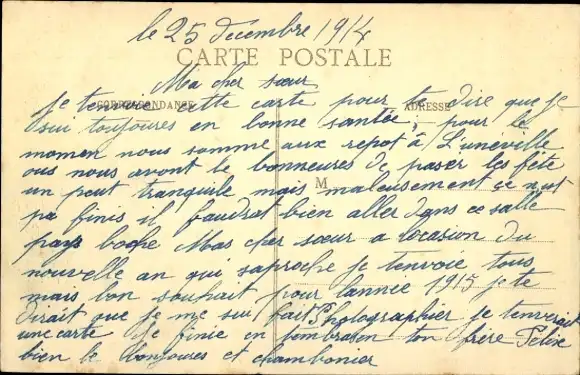 le 25 décembre 1914
CARTE POSTALE
Ma cher sœur
CORRESPONDANCE
ADRESSE
je tenvoie cette carte pour te dire que je
sui toujoures en bonne santée, pour le
momen nous somme aux repot à Lunéville
ous nous avont le bonneures de paser les fête
un peut tranquile mais maleusement se nest
M
pa finis il faudrat bien aller dans ce salle
pays boche Mas cher sœur a locasion du
nouvelle an qui saproche je tenvoie tous
mais bon souhait pour lannee 1915 je te
dirait que je me sui fait Photographier je tenverait
une carte je finie en tembrasen ton frère Felix
bien le bonjoures et